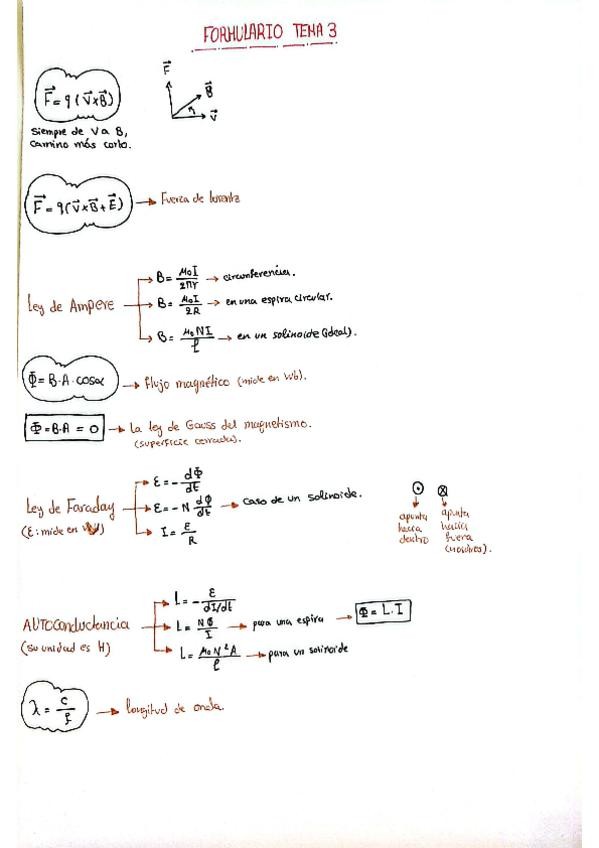 FORMULARIO TEMA 3
F⃗ = q (V⃗xB⃗)
F⃗
B⃗
V⃗
Siempre de V a B,
camino más corto.
F⃗ = q(V⃗xB⃗ + E⃗) → Fuerza de
Ley de Ampere
B = μ₀I / 2πr → circunferencias.
B = μ₀I / 2R → en una espira circular.
B = μ₀NI / ℓ → en un solinoide (ideal).
Φ = B·A·cosα → flujo magnético (mide en Wb).
Φ = B·A = 0 → La ley de Gauss del magnetismo.
(superficie cerrada).
Ley de Faraday
(ε: mide en V)
ε = - dΦ/dt
ε = - N dΦ/dt → caso de un solinoide.
I = ε/R
⊙ ⊗
apunta
hacia
dentro
apunta
hacia
fuera
(nosotros).
AUTOconductancia
(su unidad es H)
L = - ε / dI/dt
L = NΦ / I → para una espira → Φ = L.I
L = μ₀N²A / ℓ → para un solinoide
λ = c/f → longitud de onda.